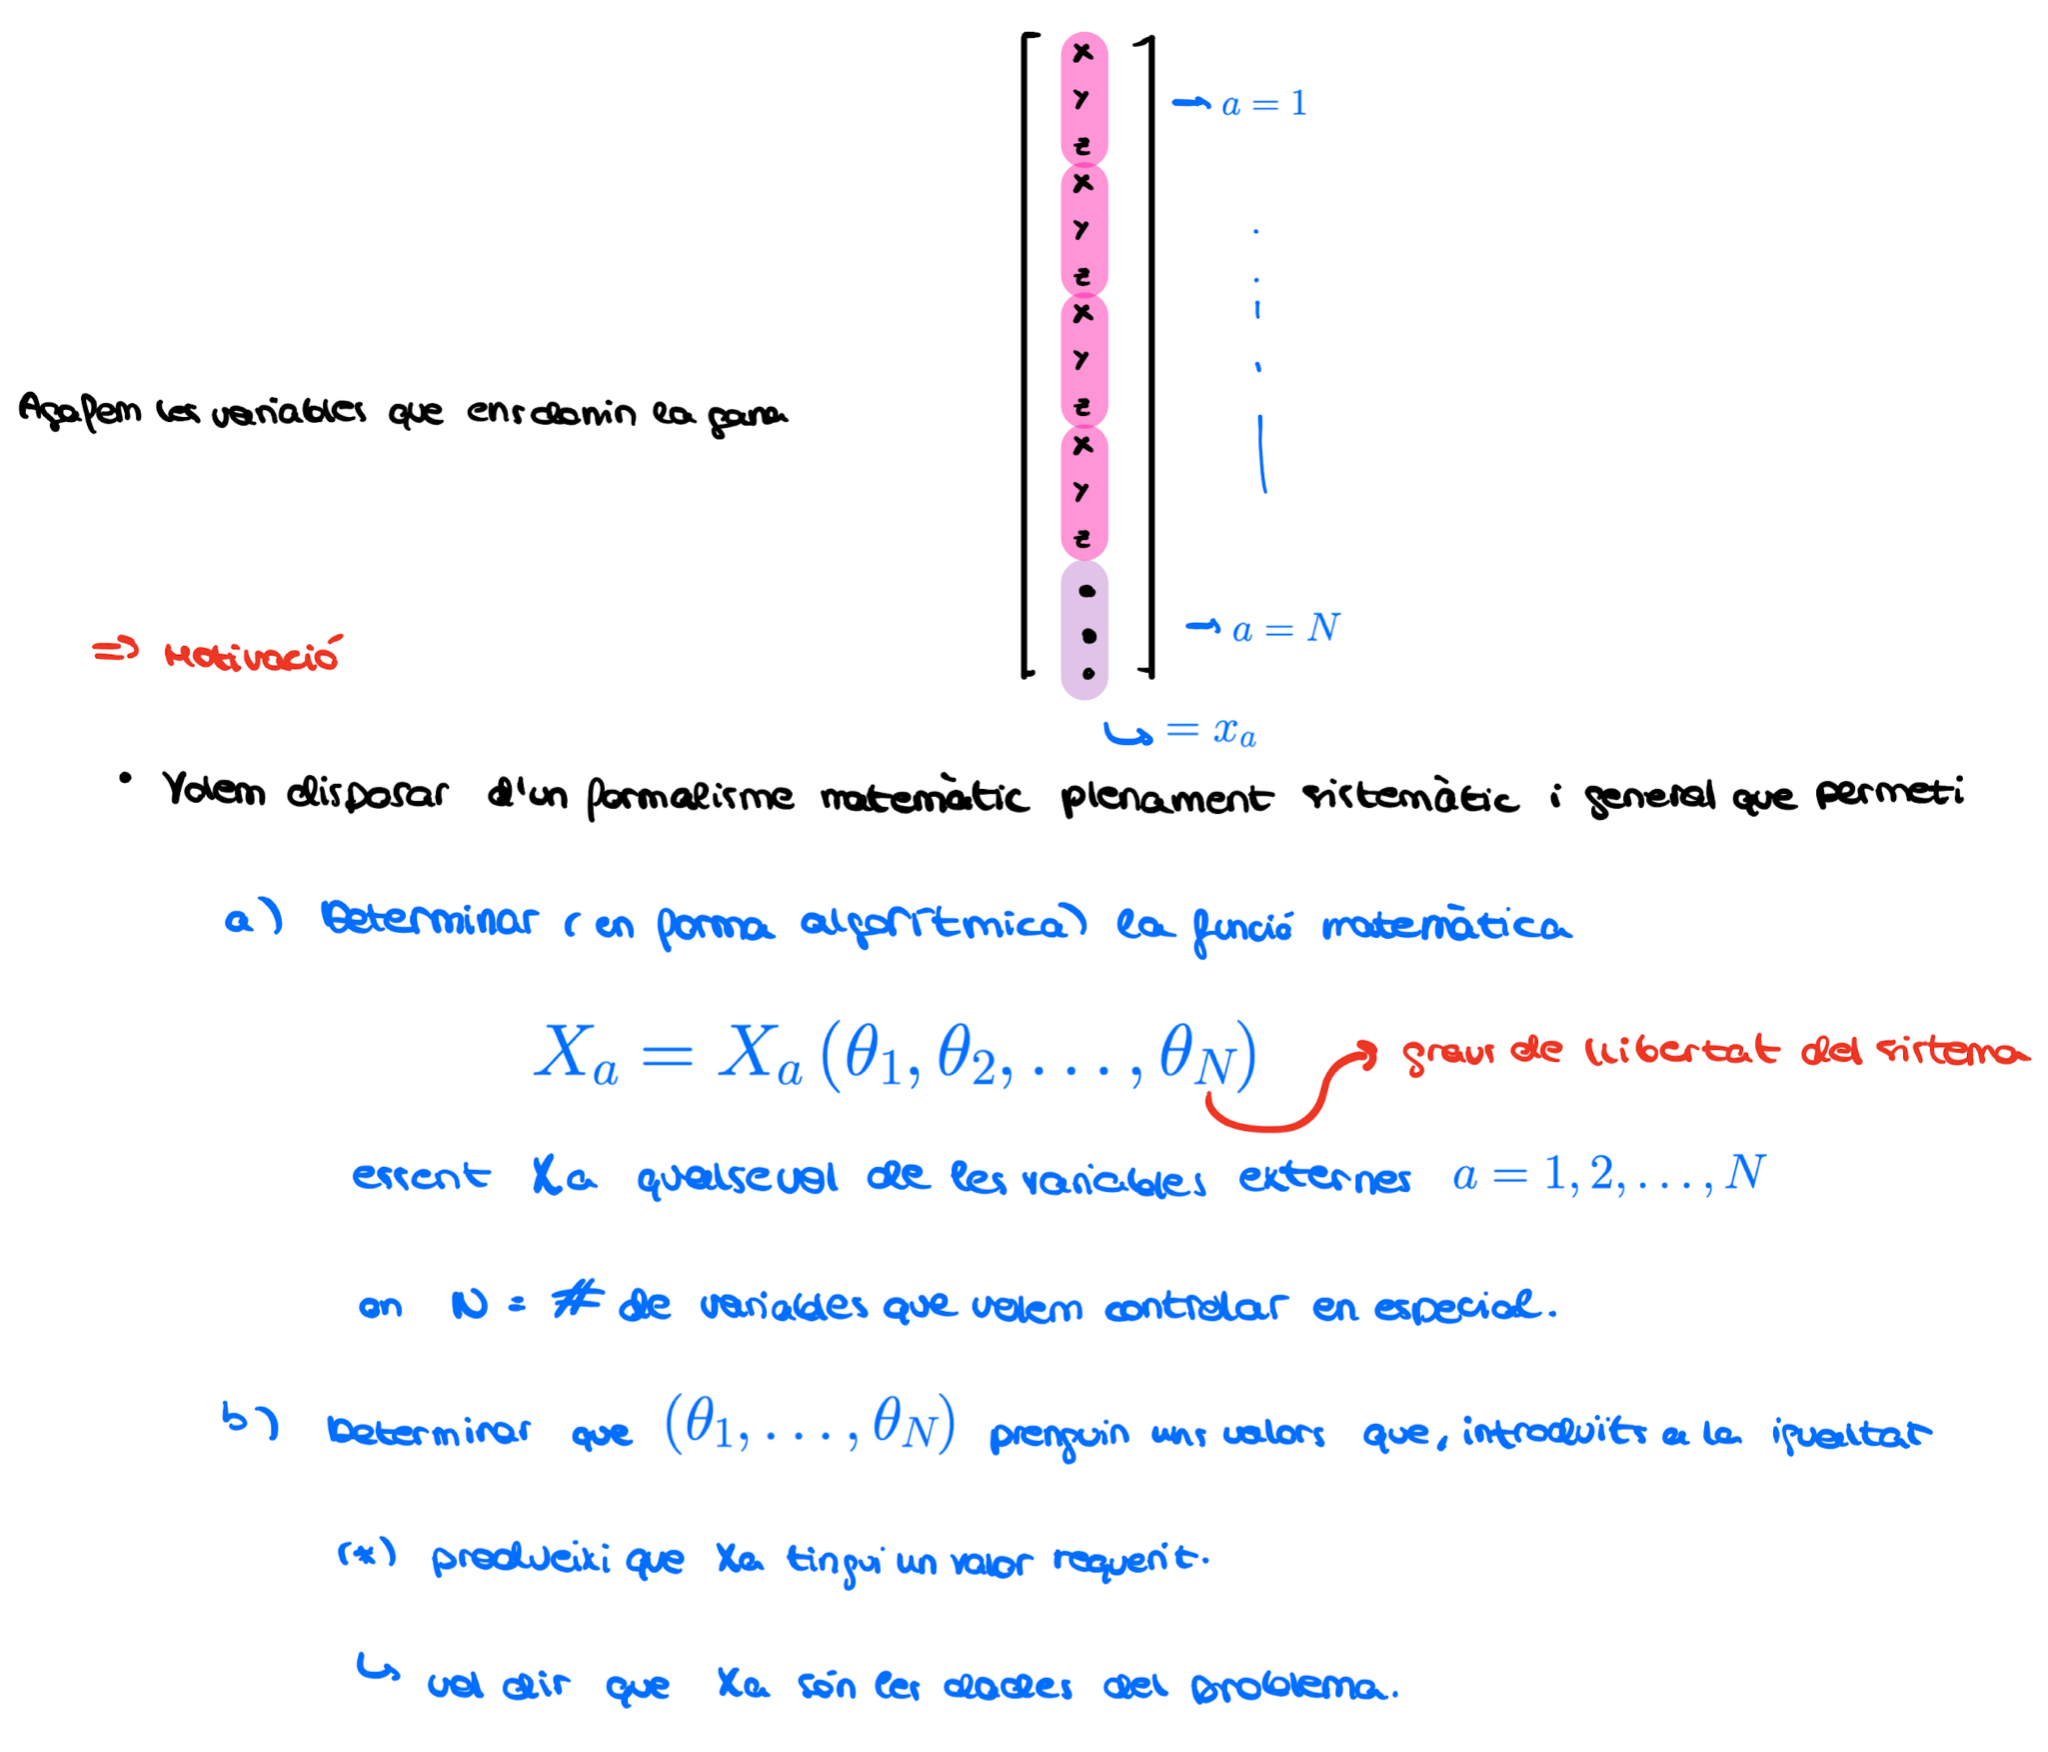 x
y
z
→ a = 1
x
y
z
x
y
z
Agafem les variables que ens donin la gana
x
y
z
→ a = N
⇒ Motivació
↪ = x_a
• Volem disposar d'un formalisme matemàtic plenament sistemàtic i general que permeti
a) Determinar (en forma algorítmica) la funció matemàtica
X_a = X_a (θ_1, θ_2, ..., θ_N) → graus de llibertat del sistema
essent Xa qualsevol de les variables externes a = 1, 2, ..., N
on N = # de variables que volem controlar en especial.
b) Determinar que (θ_1, ..., θ_N) prenguin uns valors que, introduïts a la igualtat
(*) produeixi que Xa tingui un valor requerit.
↪ vol dir que Xa són les dades del problema.